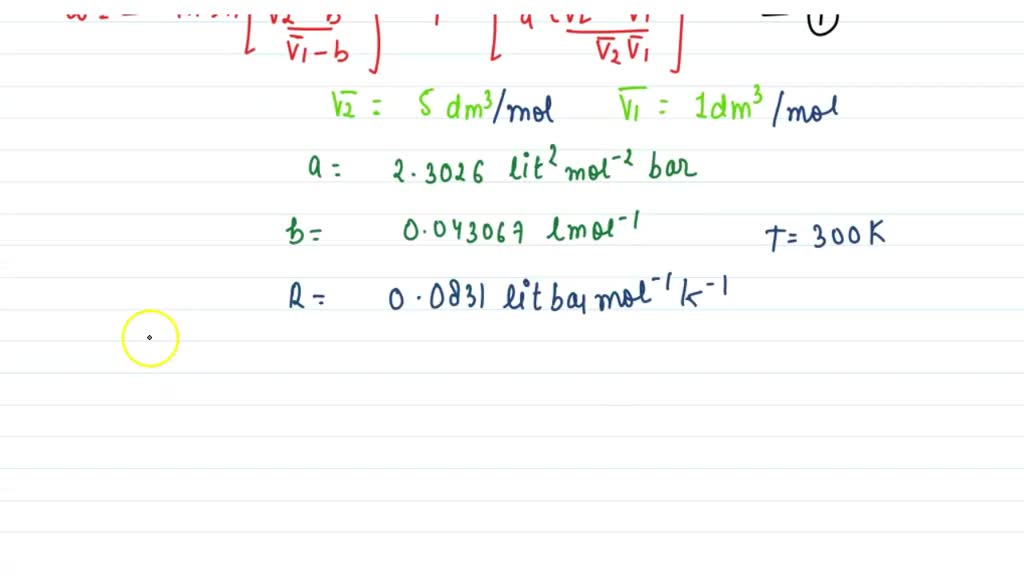 [V̄2 - b / V̄1 - b] [a (V̄2 - V̄1) / V̄2 V̄1] — ①
V̄2 = 5 dm³/mol V̄1 = 1dm³/mol
a = 2.3026 lit² mol⁻² bar
b = 0.043067 lmol⁻¹ T = 300K
R = 0.0831 lit bar mol⁻¹ k⁻¹